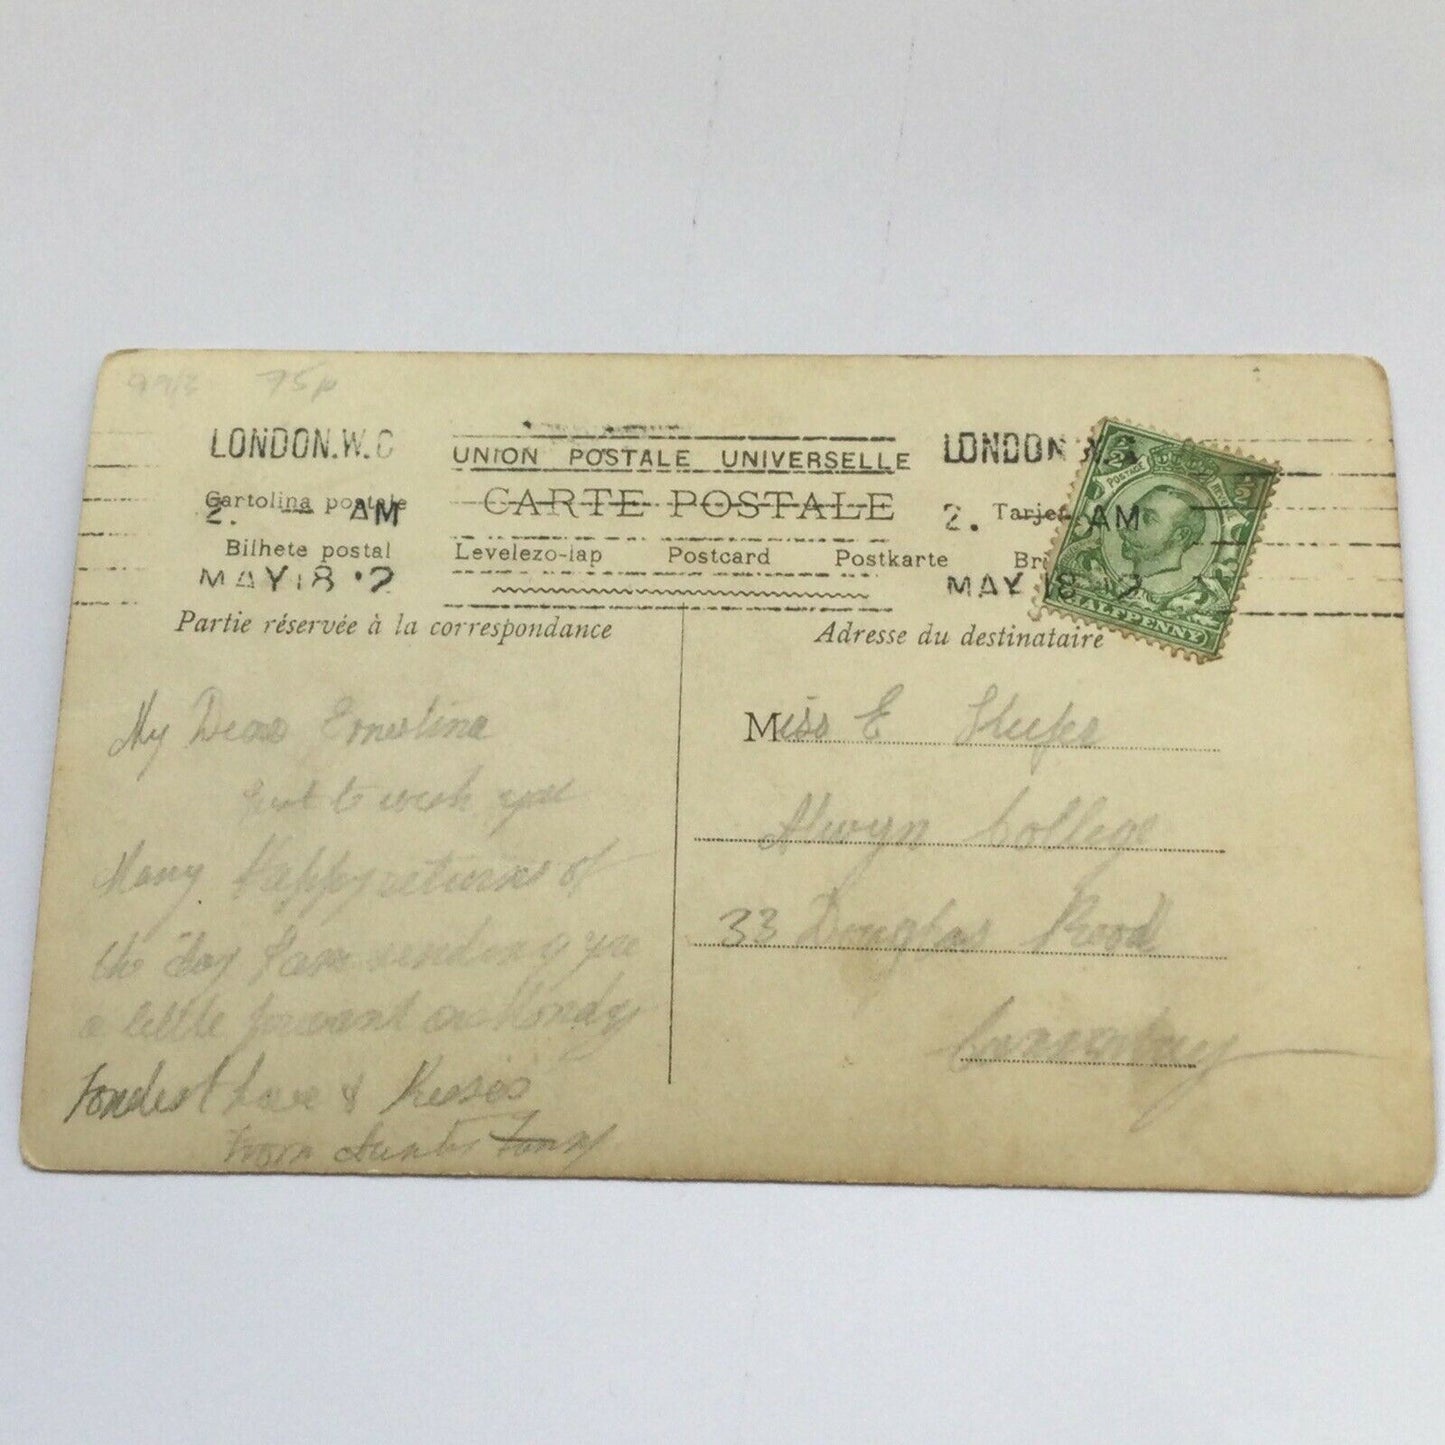 75p
LONDON.W.C
UNION POSTALE UNIVERSELLE
LONDON W.C
Cartolina postale
CARTE POSTALE
2. AM
2. AM
Bilhete postal
Levelezo-lap Postcard Postkarte
MAY 18 12
MAY 18 12
POSTAGE
HALFPENNY
Partie réservée à la correspondance
Adresse du destinataire
My Dear Ernestine
Just to wish you
Many Happy returns of
the day I am sending you
a little on Monday
Fondest love & Kisses
From Auntie Fanny
Miss E
Alwyn College
33 Douglas Road
Canonbury